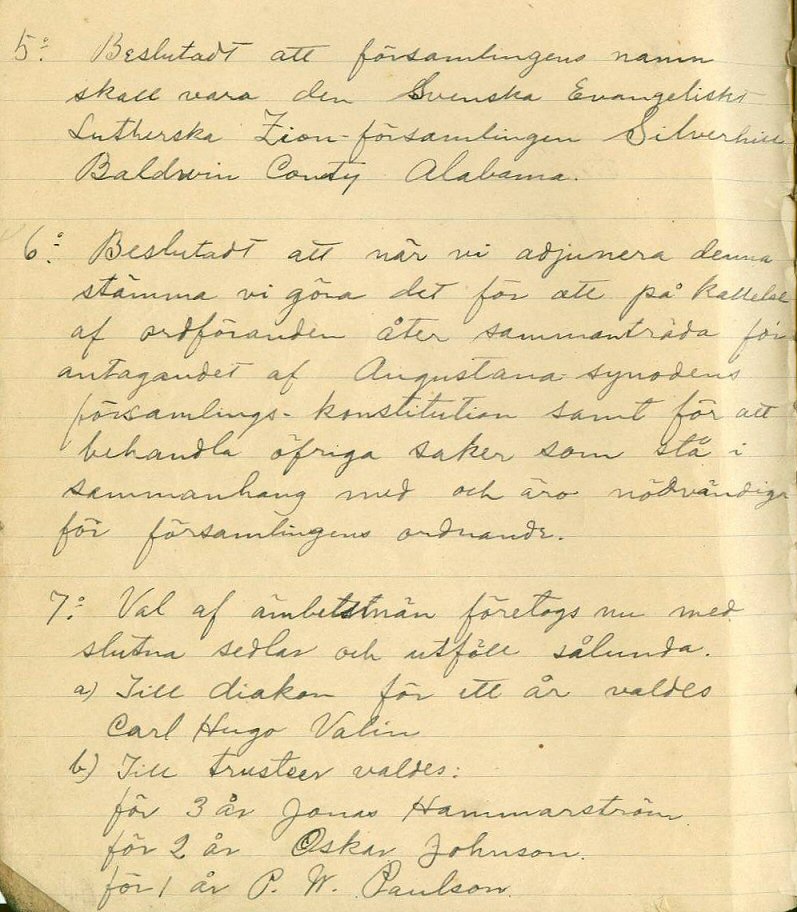 5º. Beslutadt att församlingens namn
skall vara den Svenska Evangeliskt
Lutherska Zion-församlingen Silverhill
Baldwin County Alabama.
6º. Beslutadt att när vi adjunera denna
stämma vi göra det för att på kallelse
af ordföranden åter sammanträda för
antagandet af Augustana-synodens
församlings-konstitution samt för att
behandla öfriga saker som stå i
sammanhang med och äro nödvändiga
för församlingens ordnande.
7º. Val af ämbetsmän företogs nu med
slutna sedlar och utföll sålunda.
a) Till diakon för ett år valdes
Carl Hugo Valin
b) Till trusteer valdes:
för 3 år Jonas Hammarström
för 2 år Oskar Johnson.
för 1 år P. W. Paulson.